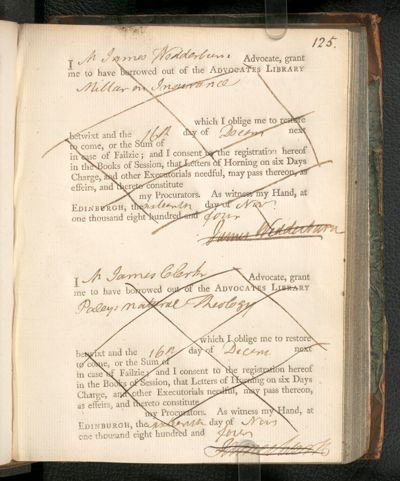 125.
I Mr James Wedderburn Advocate, grant
me to have borrowed out of the ADVOCATES LIBRARY
Millar on Insurance
which I oblige me to restore
betwixt and the 16th day of Decem next
to come, or the Sum of
in case of Failzie; and I consent to the registration hereof
in the Books of Session, that Letters of Horning on six Days
Charge, and other Executorials needful, may pass thereon, as
effeirs, and thereto constitute
my Procurators. As witness my Hand, at
EDINBURGH, the sixteenth day of Novr
one thousand eight hundred and four
James Wedderburn
I Mr James Clerk Advocate, grant
me to have borrowed out of the ADVOCATES LIBRARY
Paleys natural Theology
which I oblige me to restore
betwixt and the 16th day of Decem next
to come, or the Sum of
in case of Failzie; and I consent to the registration hereof
in the Books of Session, that Letters of Horning on six Days
Charge, and other Executorials needful, may pass thereon,
as effeirs, and thereto constitute
my Procurators. As witness my Hand, at
EDINBURGH, the sixteenth day of Novr
one thousand eight hundred and four
James Clerk